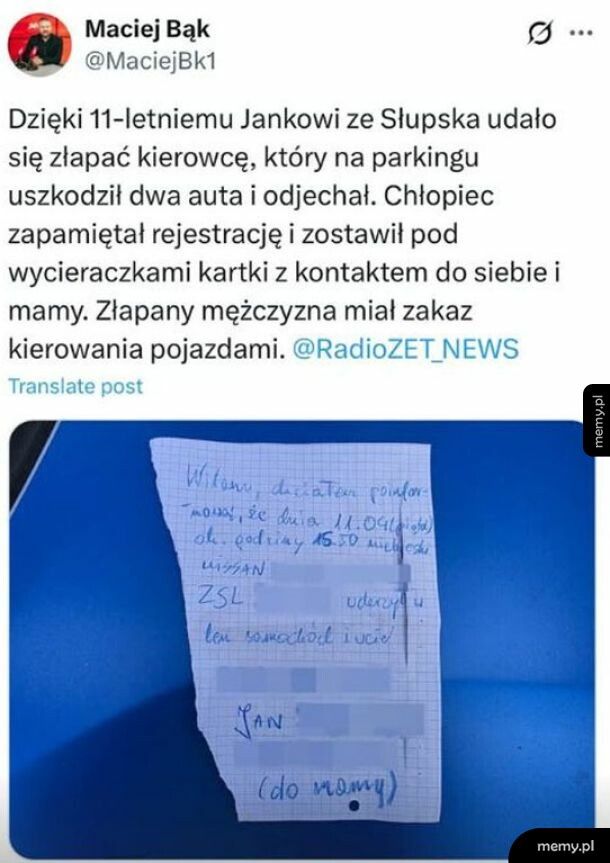 Maciej Bąk
@MaciejBk1
Dzięki 11-letniemu Jankowi ze Słupska udało
się złapać kierowcę, który na parkingu
uszkodził dwa auta i odjechał. Chłopiec
zapamiętał rejestrację i zostawił pod
wycieraczkami kartki z kontaktem do siebie i
mamy. Złapany mężczyzna miał zakaz
kierowania pojazdami. @RadioZET_NEWS
Translate post
memy.pl
Witam, chciałem poinfor-
mować, że dnia 11.04 (piątek)
ok. godziny 15:50 niebieski
NISSAN
ZSL uderzył w
ten samochód i uciekł
JAN
(do mamy)
memy.pl